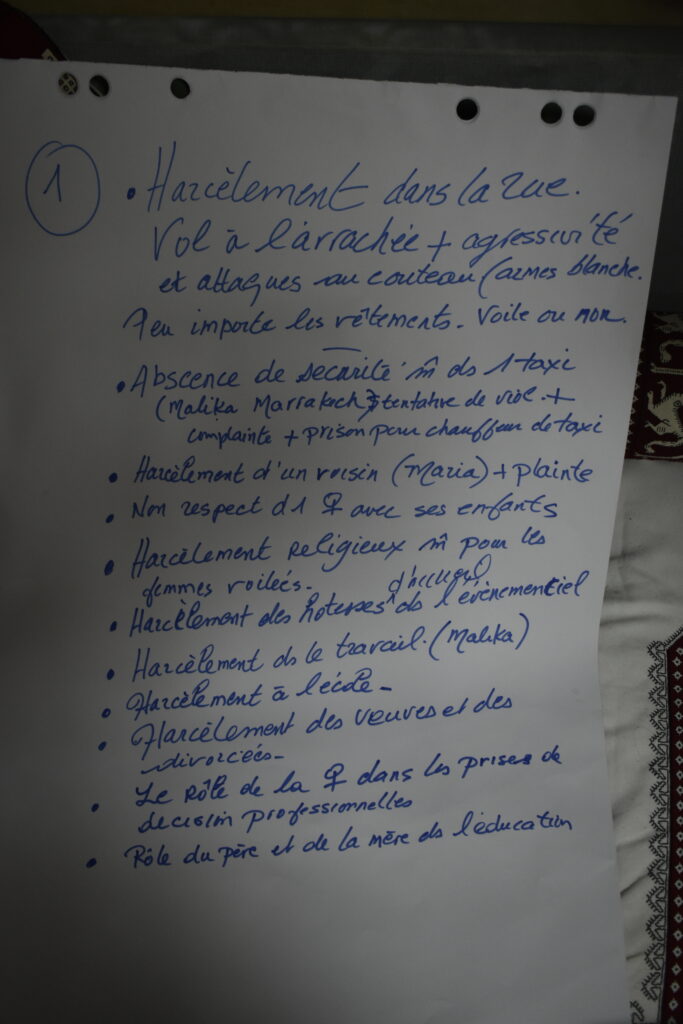 1
• Harcèlement dans la rue.
Vol à l'arrachée + agressivité
et attaques au couteau (armes blanche.
Peu importe les vêtements. Voile ou non.
• Abscence de sécurité m̂ ds 1 taxi
(Malika Marrakech) tentative de viol. +
complainte + prison pour chauffeur de taxi
• Harcèlement d'un voisin (Maria) + plainte
• Non respect d1 ♀ avec ses enfants
• Harcèlement religieux m̂ pour les
femmes voileés.
• Harcèlement des hotesses d'accueil ds l'évènementiel
• Harcèlement ds le travail. (Malika)
• Harcèlement à l'école -
• Harcèlement des veuves et des
divorcées -
• Le rôle de la ♀ dans les prises de
decision professionnelles
• Rôle du père et de la mère ds l'éducation